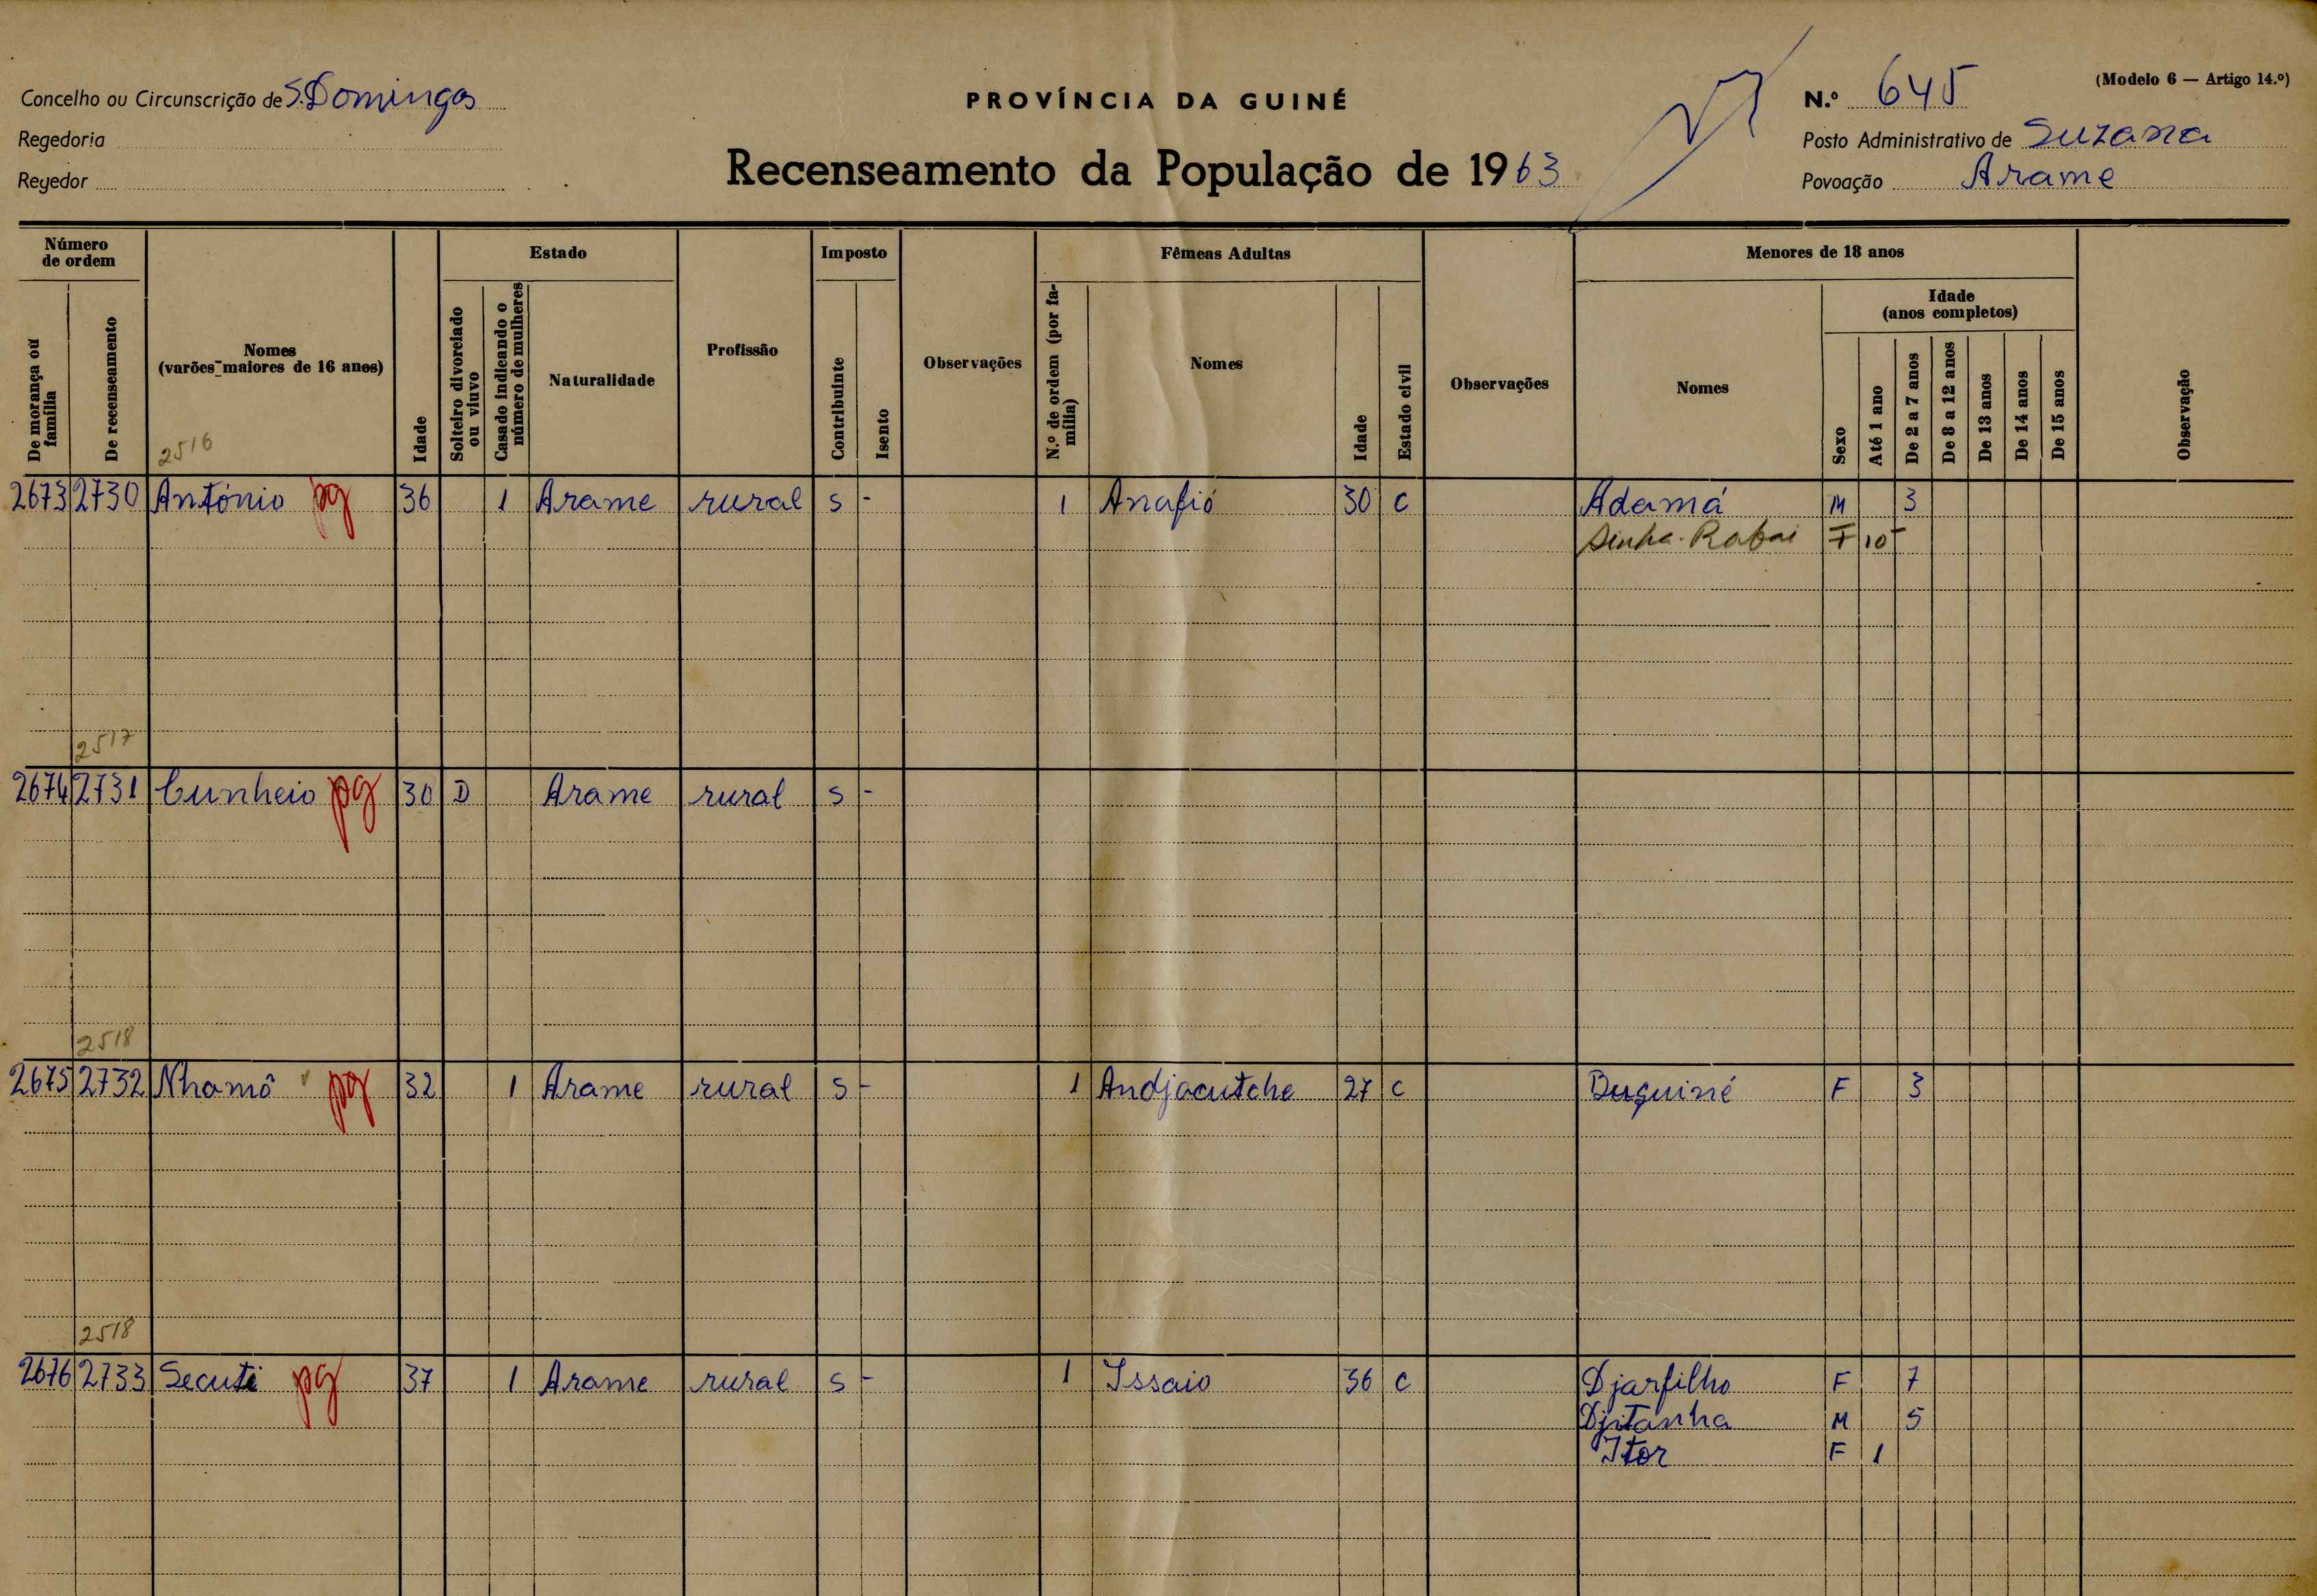 (Modelo 6 — Artigo 14.º)
Concelho ou Circunscrição de S. Domingos
PROVÍNCIA DA GUINÉ
N.º 645
Regedoria
Posto Administrativo de Suzana
Regedor
Recenseamento da População de 1963
Povoação Arame
Número de ordem
Estado
Imposto
Fêmeas Adultas
Menores de 18 anos
Idade (anos completos)
De morança ou família
De recenseamento
Nomes (varões maiores de 16 anos)
Idade
Solteiro divorciado ou viuvo
Casado indicando o número de mulheres
Naturalidade
Profissão
Contribuinte
Isento
Observações
N.º de ordem (por família)
Nomes
Idade
Estado civil
Observações
Nomes
Sexo
Até 1 ano
De 2 a 7 anos
De 8 a 12 anos
De 13 anos
De 14 anos
De 15 anos
Observação
2516
2673 2730 António pg 36 1 Arame rural s - 1 Anafió 30 c Adamá M 3
Sinha Rafai F 10
2517
2674 2731 Cunheio pg 30 D Arame rural s -
2518
2675 2732 Nhamô pg 32 1 Arame rural s - 1 Andjacutche 27 c Buguiné F 3
2518
2676 2733 Secuti pg 37 1 Arame rural s - 1 Issaio 36 c Djarfilho F 7
Djitanha M 5
Itor F 1